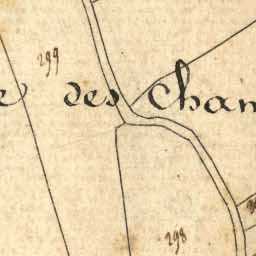 299
des Cham
298